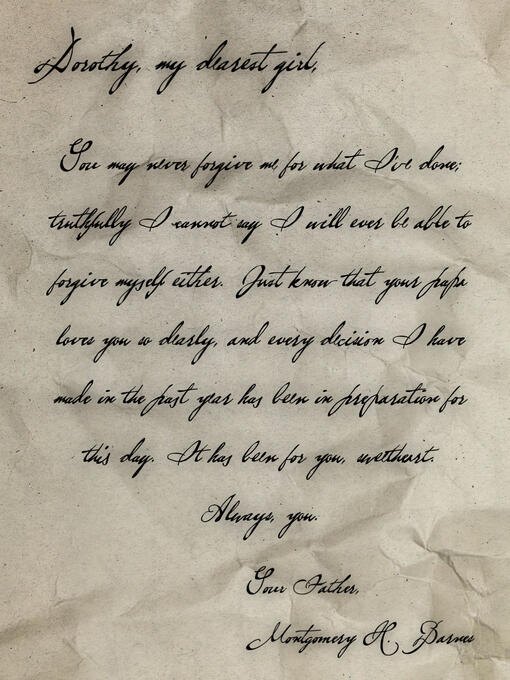 Dorothy, my dearest girl,
You may never forgive me for what I've done;
truthfully I cannot say I will ever be able to
forgive myself either. Just know that your papa
loves you so dearly, and every decision I have
made in the past year has been in preparation for
this day. It has been for you, sweetheart.
Always, you.
Your Father,
Montgomery H. Barnes